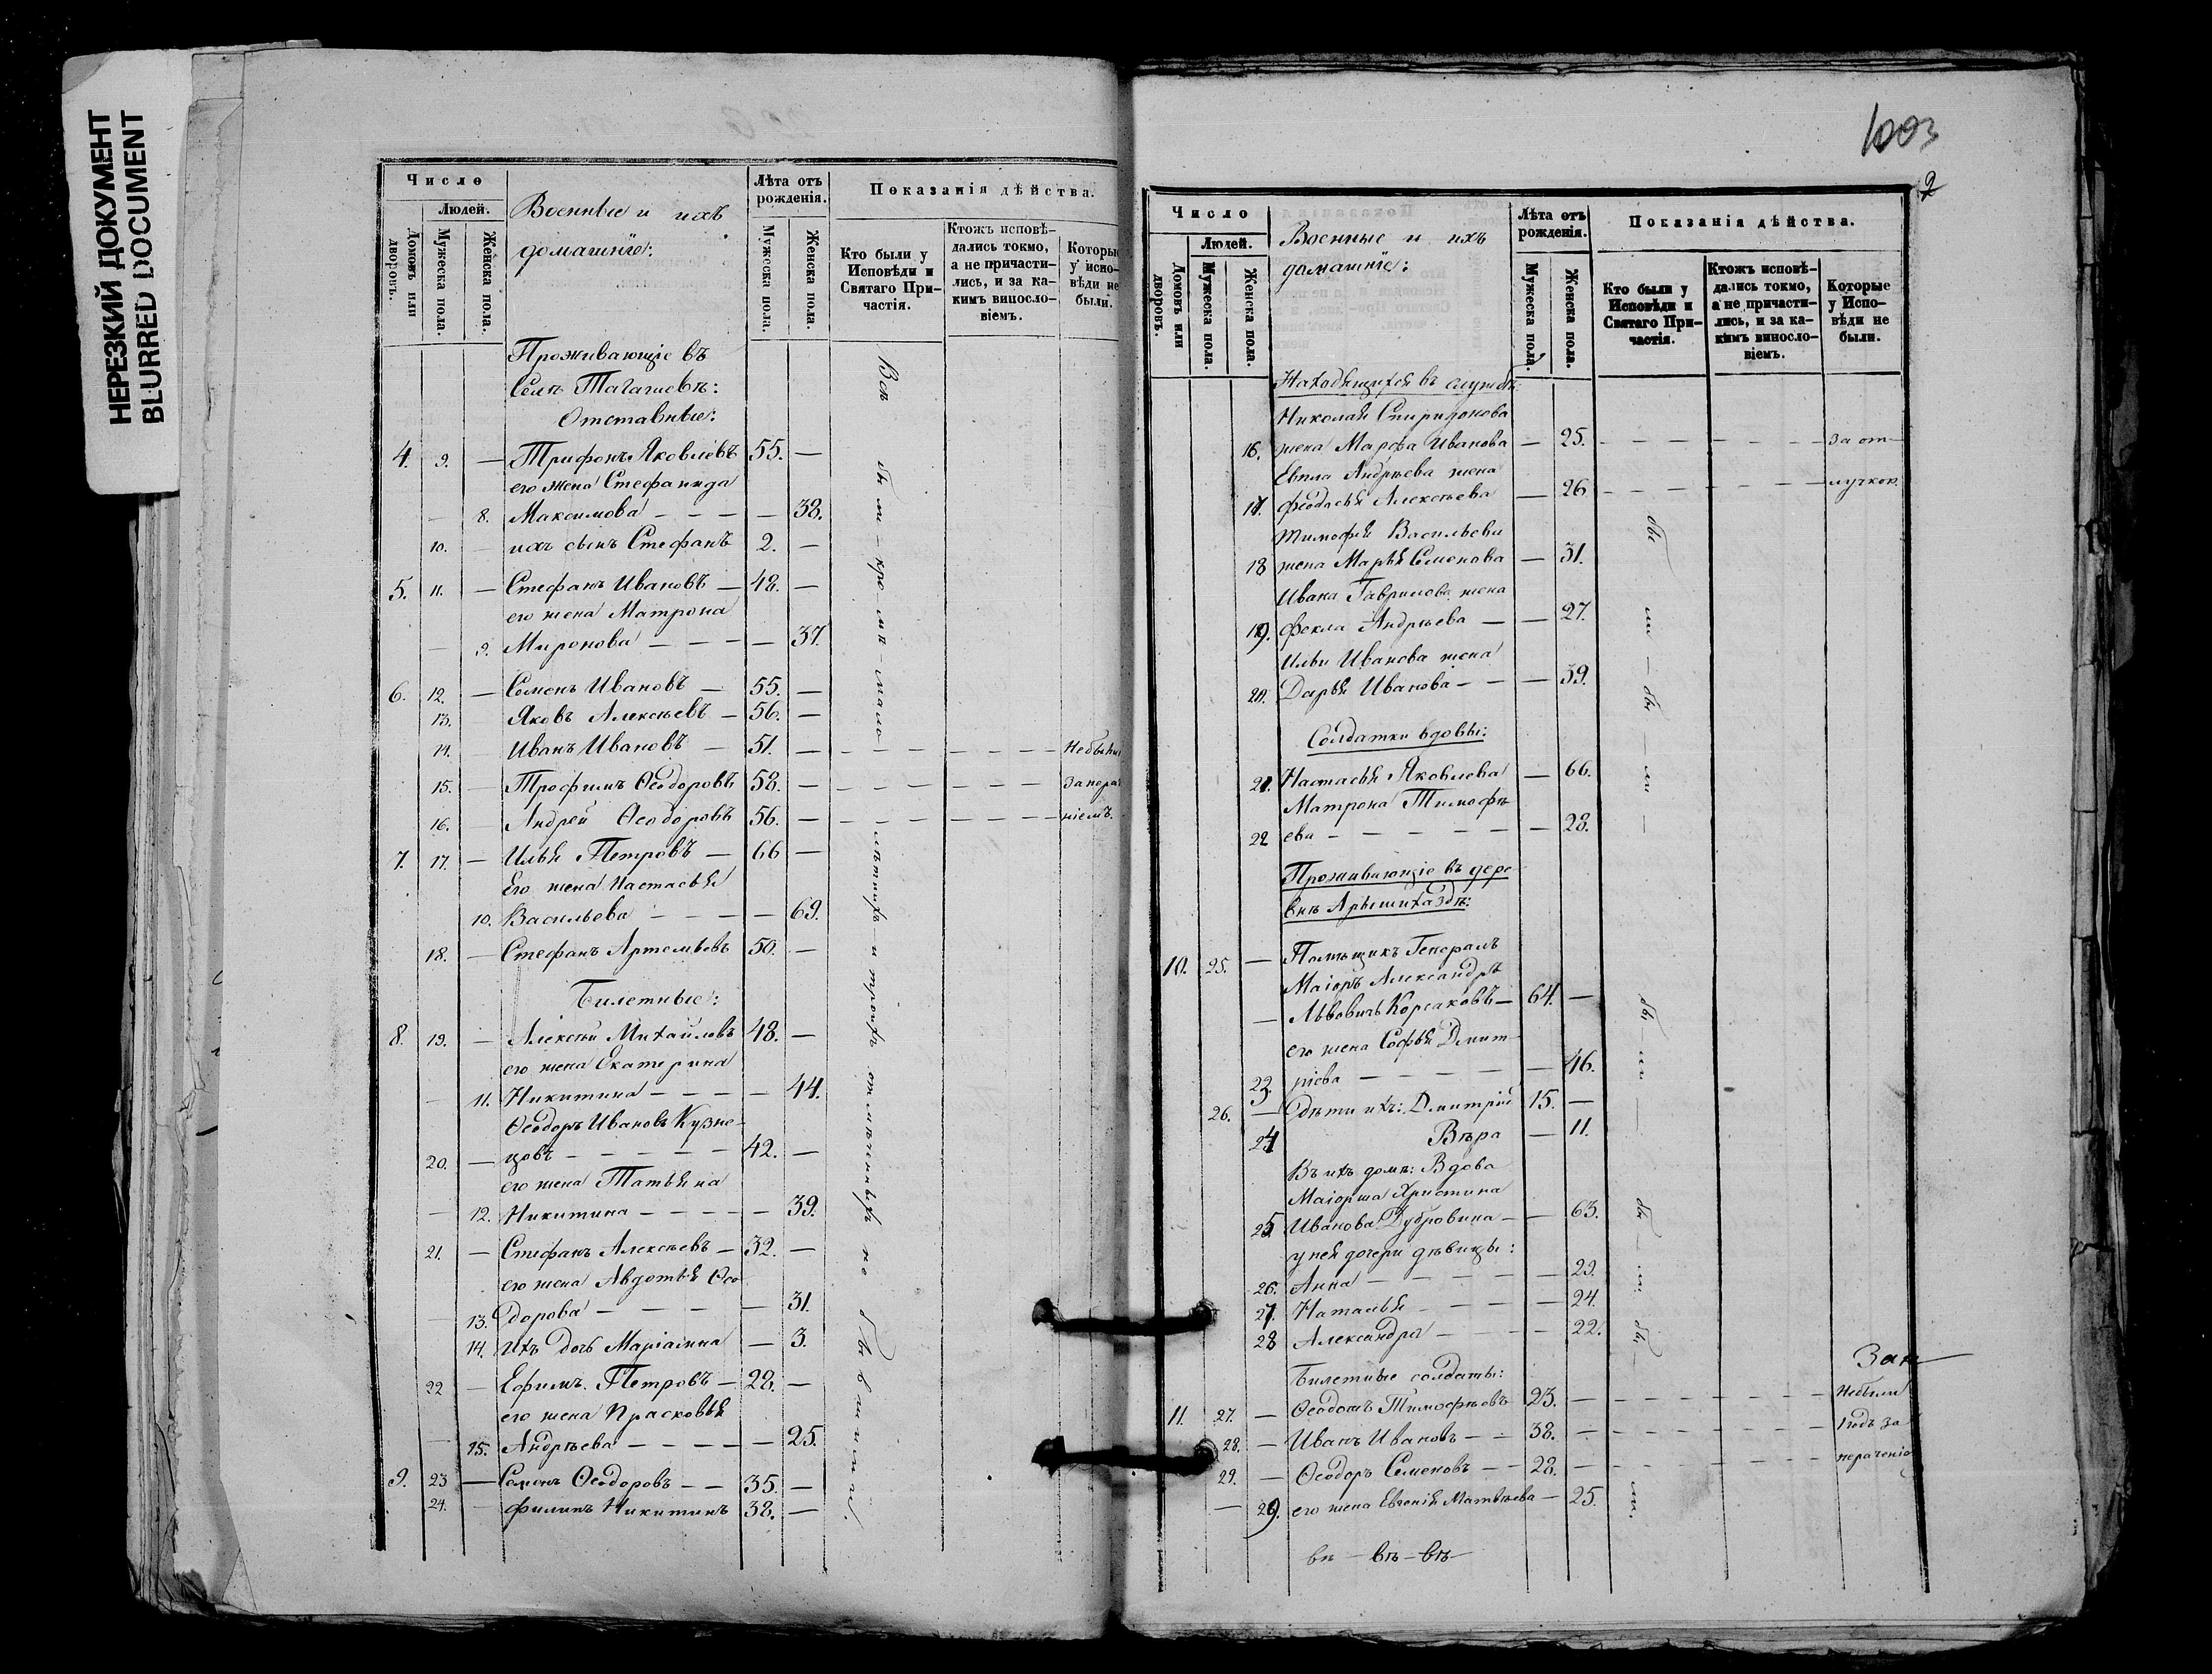 НЕРЕЗКИЙ ДОКУМЕНТ
BLURRED DOCUMENT
Число
Людей.
Домовъ или дворовъ.
Мужеска пола.
Женска пола.
Военные и ихъ
домашніе:
Лѣта отъ рожденія.
Мужеска пола.
Женска пола.
Показанія дѣйства.
Кто были у Исповѣди и Святаго Причастія.
Ктожъ исповѣ-
дались токмо,
а не причасти-
лись, и за ка-
кимъ винос­ло-
віемъ.
Которые
у испо-
вѣди не
были.
Проживающіе въ
Селѣ Тагашевѣ:
Отставные:
4. 9. — Трифонъ Яковлевъ 55. —
его жена Стефанида
— 8. Максимова — — — — 38.
10. — ихъ сынъ Стефанъ 2. —
5. 11. — Стефанъ Ивановъ — 48. —
его жена Матрона
— 9. Миронова — — — — 37.
6. 12. — Семенъ Ивановъ — 55. —
13. — Яковъ Алексѣевъ — 56. —
14. — Иванъ Ивановъ — 51. — — — — — — — — Небыли
15. — Трофимъ Ѳеодоровъ 58. — — — — — — — за нера
16. — Андрей Ѳеодоровъ 56. — — — — — — — — ніемъ.
7. 17. — Илья Петровъ — 66 —
Его жена Настасья
10. Васильева — — — — 69.
18. — Стефанъ Артемьевъ 50. —
Билетные:
8. 19. — Алексѣй Михайловъ 48. —
его жена Екатерина
— 11. Никитина — — — — 44.
Ѳеодоръ Ивановъ Кузне-
20. — цовъ — — — — — 42. —
его жена Татьяна
— 12. Никитина — — — — — 39.
21. — Стефанъ Алексѣевъ — 32. —
его жена Авдотья Ѳео
— 13. дорова — — — — — 31.
14. Ихъ дочь Маріамна — 3.
22 — Ефимъ Петровъ — 28. —
его жена Прасковья
— 15. Андрѣева — — — — — 25.
9. 23 — Семенъ Ѳеодоровъ — — 35. —
24. — Филипъ Никитинъ 38. —
Всѣ были кромѣ малолѣтнихъ и троихъ отмѣченныхъ не бывшими.
1003
2
Число
Людей.
Домовъ или дворовъ.
Мужеска пола.
Женска пола.
Военные и ихъ
домашніе:
Лѣта отъ рожденія.
Мужеска пола.
Женска пола.
Показанія дѣйства.
Кто были у Исповѣди и Святаго Причастія.
Ктожъ исповѣ-
дались токмо,
а не причасти-
лись, и за ка-
кимъ винос­ло-
віемъ.
Которые
у Испо-
вѣди не
были.
Находящихся въ службѣ
Николая Спиридонова
16. жена Марфа Иванова — 25. — — — — — — за от-
Евпла Андрѣева жена
17. Феодосья Алексѣева — 26 — — — — — — лучкою.
Тимофѣя Васильева
18 жена Марья Семенова — 31.
Ивана Гаврилова жена
19. Фекла Андрѣева — — 27.
Ильи Иванова жена
20. Дарья Иванова — — — 39.
Солдатки вдовы:
21. Настасья Яковлева — 66.
Матрона Тимофѣ
22 ева — — — — — — 28.
Проживающіе въ дере
внѣ Арышихаздѣ:
10. 25. — Помѣщикъ Генералъ
Маіоръ Александръ
— Львовичъ Корсаковъ — 64. —
его жена Софья Дмит-
23. ріева — — — — — — 46.
26. — Дѣти ихъ: Дмитрій 15. —
24 Вѣра — 11.
Въ ихъ домѣ: Вдова
Маіорша Христина
25 Иванова Дубровина — — 63.
у ней дочери дѣвицы:
26. Анна — — — — — — 29.
27. Наталья — — — — — 24.
28 Александра — — — — 22.
Билетные солдаты:
За н
11. 27. — Ѳеодотъ Тимофѣевъ 23. — — — — — — — Небыли
28. — Иванъ Ивановъ — — 38. — — — — — — — 1 годъ за
29. — Ѳеодоръ Семеновъ — — 28. — — — — — — — нераченіе
— 29. его жена Евгенія Матвѣева — 25.
бы — ли — бы — ли —
бы — ли —
бы — ли. бы —
ли.
въ — въ — въ